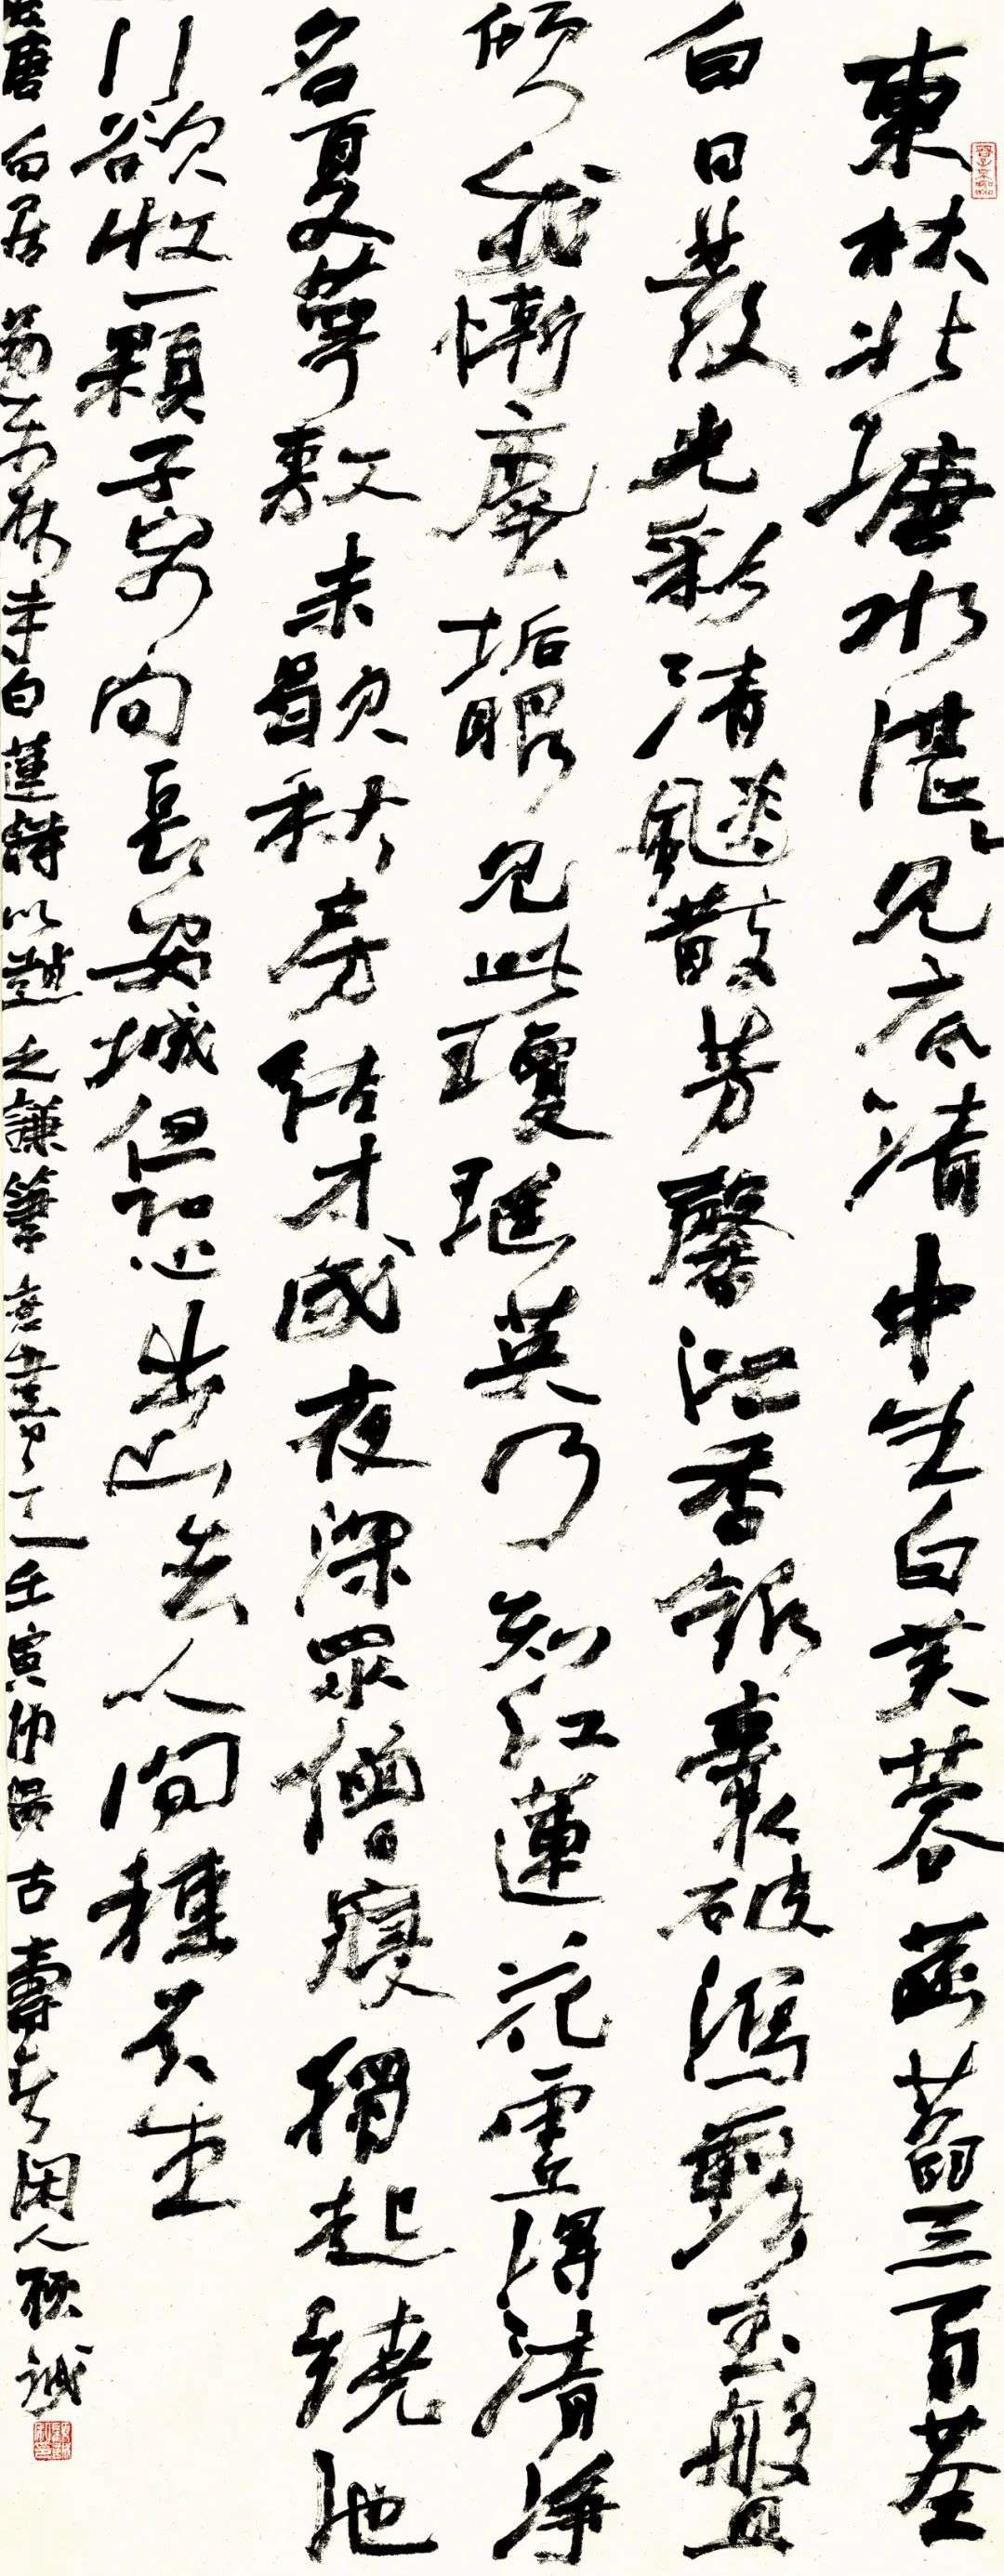 東林北塘水湛〻見底清中生白芙蓉菡萏三百莖
白日發光彩清飆散芳馨泄香銀囊破瀉露玉盤
傾我慚塵垢眼見此瓊瑤英乃知紅蓮花虛得清淨
名夏萼敷未歇秋房結才成夜深眾僧寢獨起繞池
行欲收一顆子寄向長安城但恐出山去人間種不生
唐白居易東林寺白蓮詩以趙之謙筆意書之壬寅仲夏古壽春閑人誠